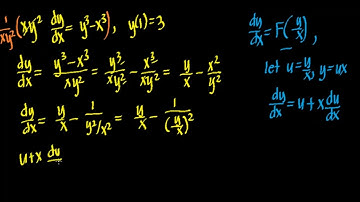 1/xy² (xy² dy/dx = y³-x³), y(1)=3
dy/dx = (y³-x³)/(xy²) = y³/(xy²) - x³/(xy²) = y/x - x²/y²
dy/dx = y/x - 1/(y²/x²) = y/x - 1/(y/x)²
u+x du/
dy/dx = F(y/x),
let u=y/x, y=ux
dy/dx = u+x du/dx